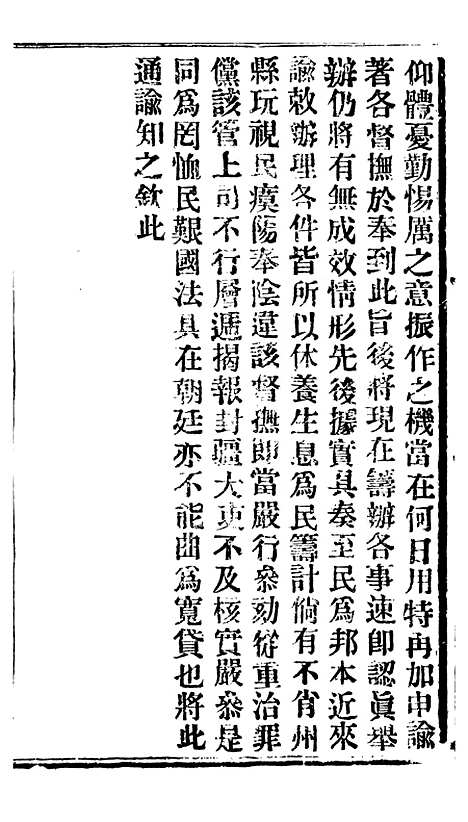 仰體憂勤惕厲之意振作之機當在何日用特再加申諭
著各督撫於奉到此旨後將現在籌辦各事速卽認眞舉
辦仍將有無成效情形先後據實具奏至民爲邦本近來
諭敕辦理各件皆所以休養生息爲民籌計倘有不肖州
縣玩視民瘼陽奉陰違該督撫卽當嚴行叅劾從重治罪
儻該管上司不行層遞揭報封疆大吏不及核實嚴叅是
同爲罔恤民艱國法具在朝廷亦不能曲爲寬貸也將此
通諭知之欽此